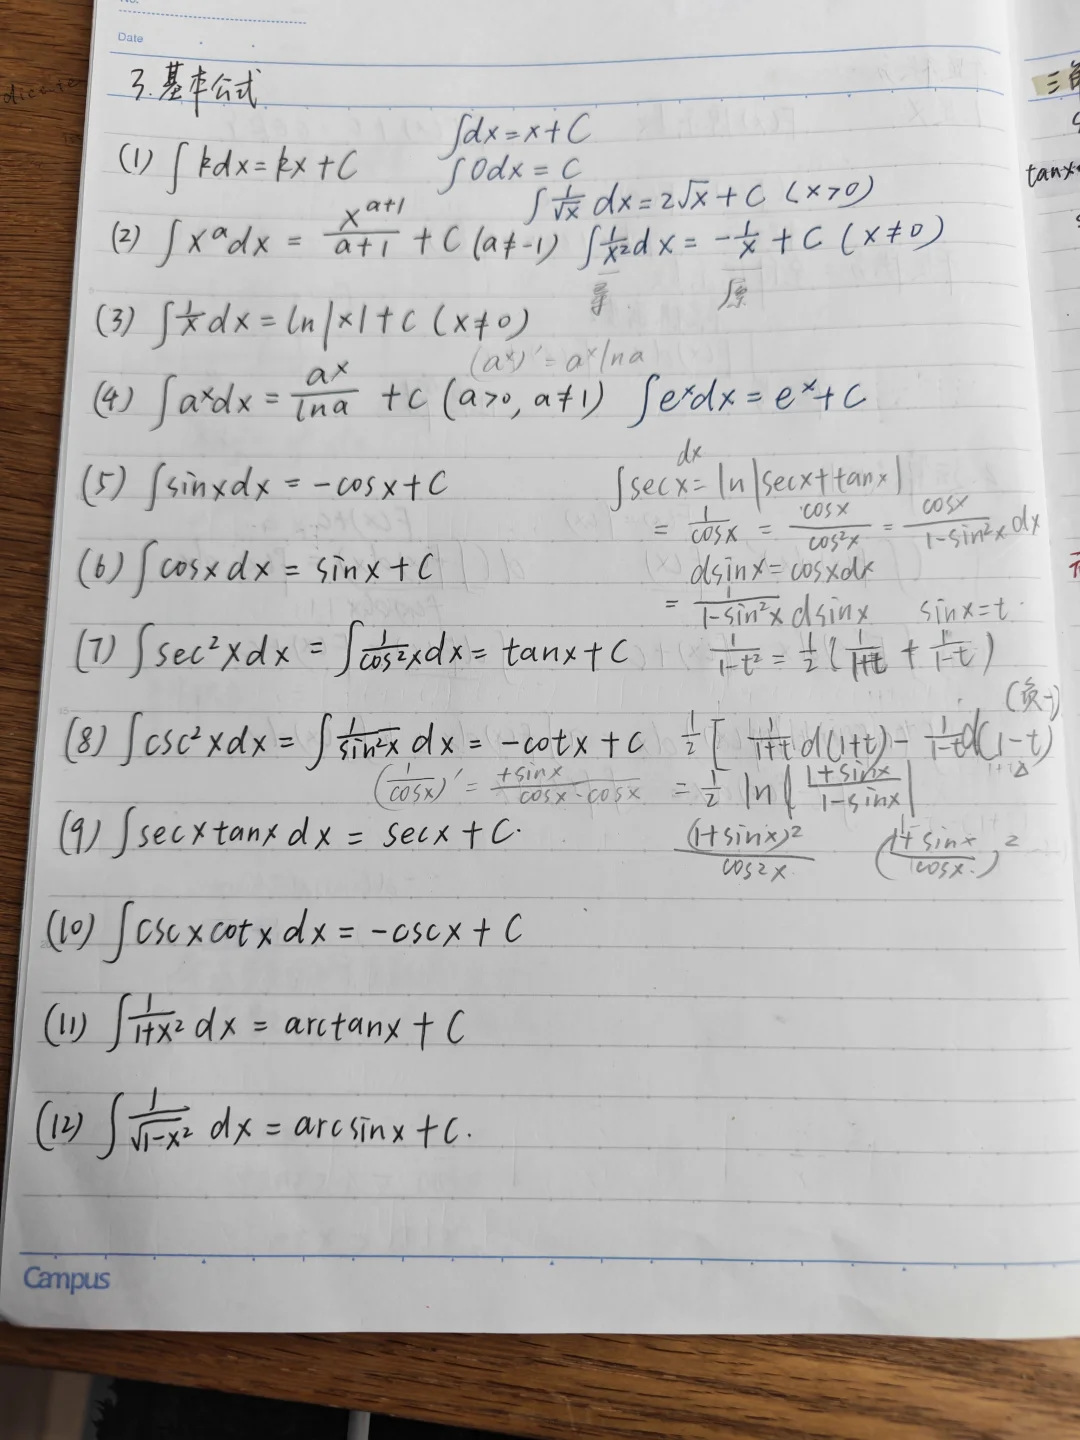 Date
3.基本公式
∫dx=x+C
(1) ∫kdx=kx+C ∫0dx=C
∫1/√x dx=2√x+C (x>0)
(2) ∫x^a dx = x^(a+1)/(a+1) + C (a≠-1) ∫1/x² dx = -1/x + C (x≠0)
导 原
(3) ∫1/x dx = ln|x|+C (x≠0)
(a^x)' = a^x lna
(4) ∫a^x dx = a^x/lna + C (a>0, a≠1) ∫e^x dx = e^x+C
(5) ∫sinxdx = -cosx+C
∫secx dx = ln|secx+tanx|
= 1/cosx = cosx/cos²x = cosx/(1-sin²x) dx
(6) ∫cosxdx = sinx+C
dsinx=cosxdx
= 1/(1-sin²x) dsinx sinx=t
(7) ∫sec²xdx = ∫1/cos²x dx = tanx+C
1/(1-t²) = 1/2(1/(1+t) + 1/(1-t))
(负-)
(8) ∫csc²xdx = ∫1/sin²x dx = -cotx+C
1/2[1/(1+t) d(1+t) - 1/(1-t) d(1-t)
(1/cosx)' = +sinx/(cosx·cosx) = 1/2 ln|(1+sinx)/(1-sinx)|
(9) ∫secxtanxdx = secx+C.
(1+sinx)²/cos²x ((1+sinx)/cosx.)²
(10) ∫cscxcotxdx = -cscx+C
(11) ∫1/(1+x²) dx = arctanx+C
(12) ∫1/√(1-x²) dx = arcsinx+C.
Campus
三角
tanx